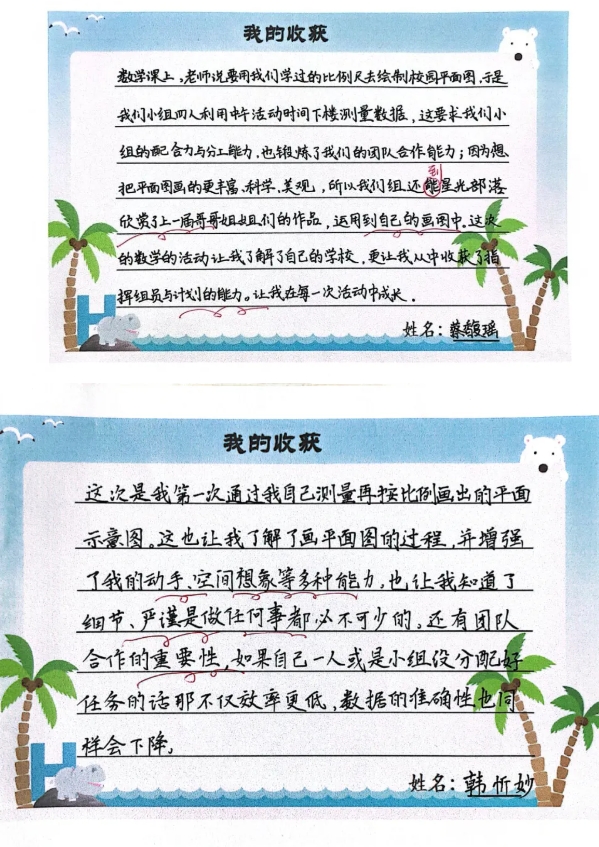 我的收获
数学课上,老师说要用我们学过的比例尺去绘制校园平面图.于是
我们小组四人利用中午活动时间下楼测量数据,这要求我们小
组的配合力与分工能力.也锻炼了我们的团队合作能力;因为想
把平面图画的更丰富、科学、美观,所以我们组还到星光部落
欣赏了上一届哥哥姐姐们的作品,运用到自己的画图中.这次
的数学的活动让我了解了自己的学校.更让我从中收获了指
挥组员与计划的能力。让我在每一次活动中成长.
姓名:蔡馥瑶
我的收获
这次是我第一次通过我自己测量再按比例画出的平面
示意图。这也让我了解了画平面图的过程,并增强
了我的动手、空间想象等多种能力,也让我知道了
细节、严谨是做任何事都必不可少的。还有团队
合作的重要性,如果自己一人或是小组没分配好
任务的话那不仅效率更低,数据的准确性也同
样会下降。
姓名:韩忻妙